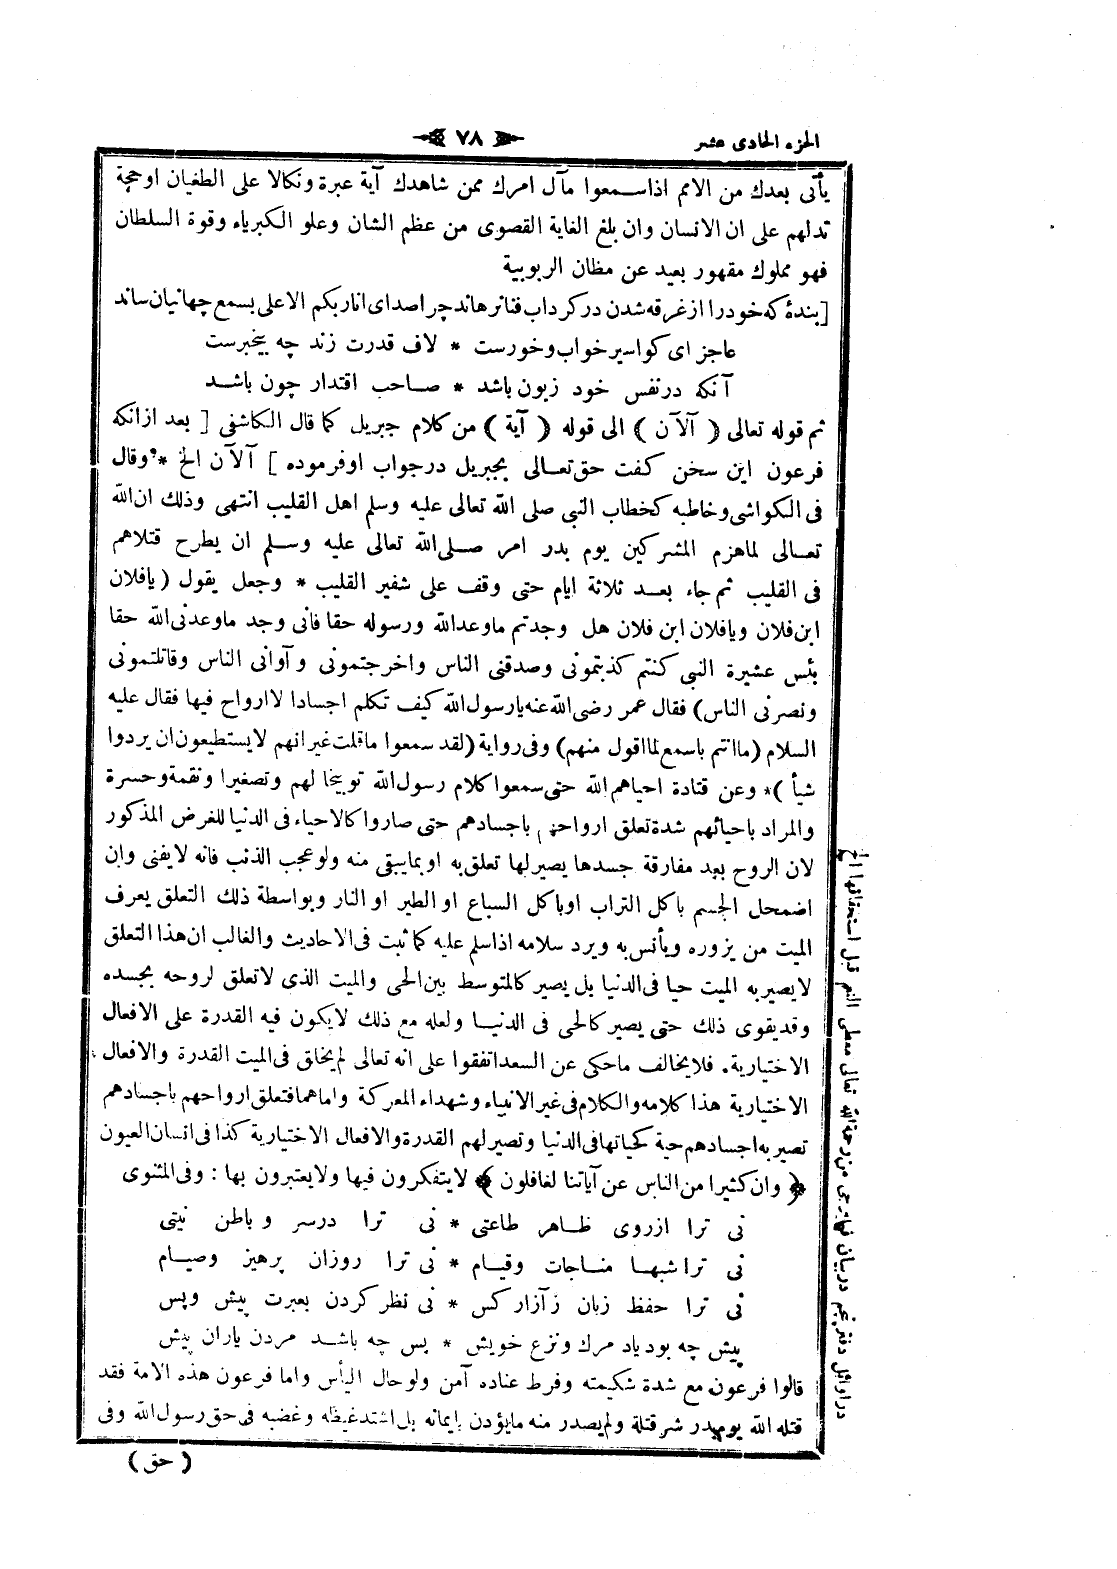 الجزء الحادى عشر
٧٨
يأتى بعدك من الامم اذاسمعوا مآل امرك ممن شاهدك آية عبرة ونكالا على الطغيان اوحجة
تدلهم على ان الانسان وان بلغ الغاية القصوى من عظم الشان وعلو الكبرياء وقوة السلطان
فهو مملوك مقهور بعيد عن مظان الربوبية
[بندۀ كه خودرا ازغرقه شدن دركرداب فناترهاند چراصداى اناربكم الاعلى بسمع جهانيان ساند
عاجز اى كواسير خواب وخورست * لاف قدرت زند چه بيخبرست
آنكه درنفس خود زبون باشد * صاحب اقتدار چون باشد
ثم قوله تعالى ( آلآن ) الى قوله ( آية ) من كلام جبريل كما قال الكاشفى [ بعد ازانكه
فرعون اين سخن كفت حق تعالى بجبريل درجواب اوفرموده ] آلآن الخ * وقال
فى الكواشى وخاطبه كخطاب النبى صلى الله تعالى عليه وسلم اهل القليب انتهى وذلك ان الله
تعالى لماهزم المشركين يوم بدر امر صلى الله تعالى عليه وسلم ان يطرح قتلاهم
فى القليب ثم جاء بعد ثلاثة ايام حتى وقف على شفير القليب * وجعل يقول ( يافلان
ابن فلان ويافلان ابن فلان هل وجدتم ماوعدالله ورسوله حقا فانى وجد ماوعدنى الله حقا
بئس عشيرة النبى كنتم كذبتمونى وصدقنى الناس واخرجتمونى وآوانى الناس وقاتلتمونى
ونصرنى الناس) فقال عمر رضى الله عنه يارسول الله كيف تكلم اجسادا لاارواح فيها فقال عليه
السلام (ماانتم باسمع لمااقول منهم) وفى رواية (لقد سمعوا ماقلت غيرانهم لايستطيعون ان يردوا
شيأ )* وعن قتادة احياهم الله حتى سمعوا كلام رسول الله توبيخا لهم وتصغيرا ونقمة وحسرة
والمراد باحيائهم شدة تعلق ارواحهم باجسادهم حتى صاروا كالاحياء فى الدنيا للغرض المذكور
لان الروح بعد مفارقة جسدها يصير لها تعلق به اوبمايبقى منه ولوعجب الذنب فانه لايفنى وان
اضمحل الجسم باكل التراب اوباكل السباع او الطير او النار وبواسطة ذلك التعلق يعرف
الميت من يزوره ويأنس به ويرد سلامه اذاسلم عليه كما ثبت فى الاحاديث والغالب ان هذا التعلق
لايصير به الميت حيا فى الدنيا بل يصير كالمتوسط بين الحى والميت الذى لاتعلق لروحه بجسده
وقديقوى ذلك حتى يصير كالحى فى الدنيا ولعله مع ذلك لايكون فيه القدرة على الافعال
الاختيارية. فلايخالف ماحكى عن السعداتفقوا على انه تعالى لم يخلق فى الميت القدرة والافعال
الاختيارية هذا كلامه والكلام فى غير الانبياء وشهداء المعركة واماهما فتعلق ارواحهم باجسادهم
تصير به اجسادهم حية كحياتها فى الدنيا وتصير لهم القدرة والافعال الاختيارية كذا فى انسان العيون
﴿ وان كثيرا من الناس عن آياتنا لغافلون ﴾ لايتفكرون فيها ولايعتبرون بها : وفى المثنوى
نى ترا ازروى ظاهر طاعتى * نى ترا درسر وباطن نيتى
نى تراشبها مناجات وقيام * نى ترا روزان پرهيز وصيام
نى ترا حفظ زبان زآزار كس * نى نظر كردن بعبرت پيش وپس
پيش چه بود ياد مرك ونزع خويش * پس چه باشد مردن ياران پيش
قالوا فرعون مع شدة شكيمته وفرط عناده آمن ولوحال اليأس واما فرعون هذه الامة فقد
قتله الله يوم بدر شر قتلة ولم يصدر منه مايؤذن بايمانه بل اشتد غيظه وغضبه فى حق رسول الله وفى
( حق )
دراوائل دفتر پنجم دربيان فيما يرجى من رحمة الله تعالى معطى النعم قبل استحقاقها الخ